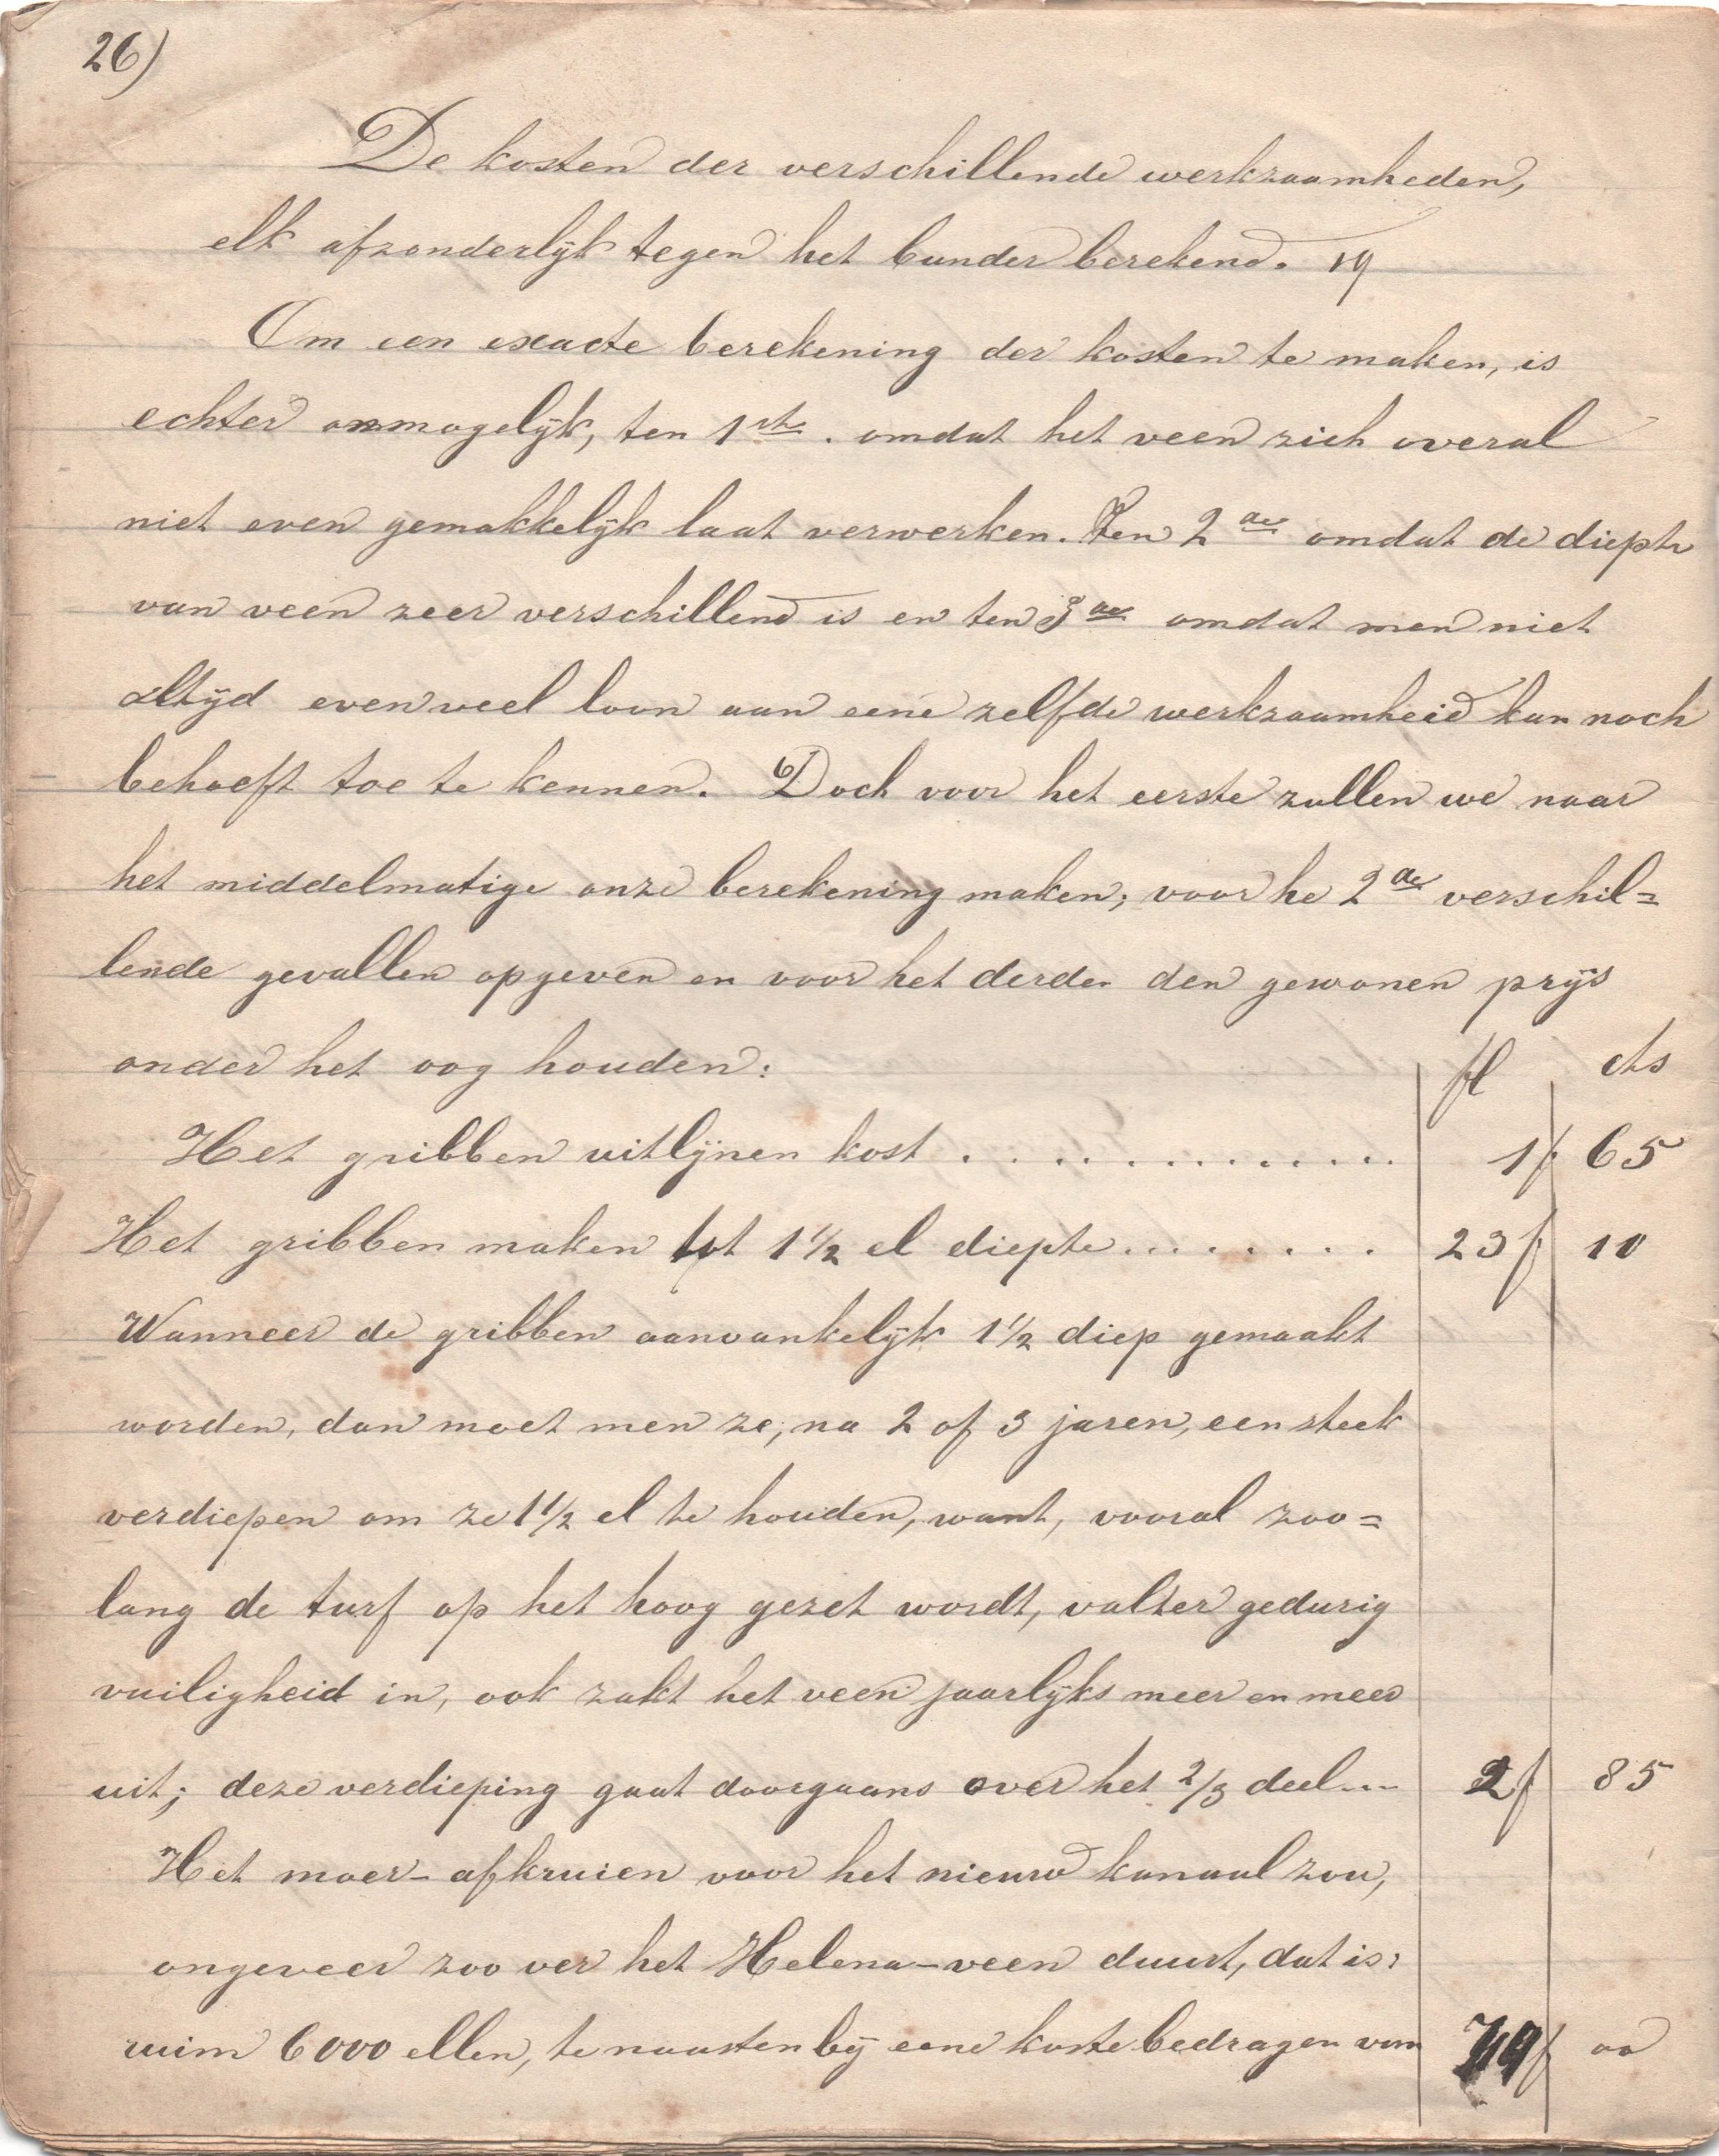 26)
De kosten der verschillende werkzaamheden,
elk afzonderlijk tegen het bunder berekend. 19
Om een exacte berekening der kosten te maken, is
echter onmogelijk, ten 1ste. omdat het veen zich overal
niet even gemakkelijk laat verwerken. Ten 2de omdat de diepte
van veen zeer verschillend is en ten 3de omdat men niet
altijd evenveel loon aan eene zelfde werkzaamheid kan noch
behoeft toe te kennen. Doch voor het eerste zullen we naar
het middelmatige onze berekening maken; voor he 2de verschil=
lende gevallen opgeven en voor het derde den gewonen prijs
onder het oog houden: fl cts
Het gribben uitlijnen kost .............. 1f 65
Het gribben maken tot 1 1/2 el diepte........ 23f 10
Wanneer de gribben aanvankelijk 1 1/2 diep gemaakt
worden, dan moet men ze, na 2 of 3 jaren, een steek
verdiepen om ze 1 1/2 el te houden, want, vooral zoo=
lang de turf op het hoog gezet wordt, valter gedurig
vuiligheid in, ook zakt het veen jaarlijks meer en meer
uit; deze verdieping gaat doorgaans over het 2/3 deel... 2f 85
Het moer-afkruien voor het nieuw kanaal zou,
ongeveer zoo ver het Helena-veen duurt, dat is:
ruim 6000 ellen, te naasten bij eene koste bedragen van f 00